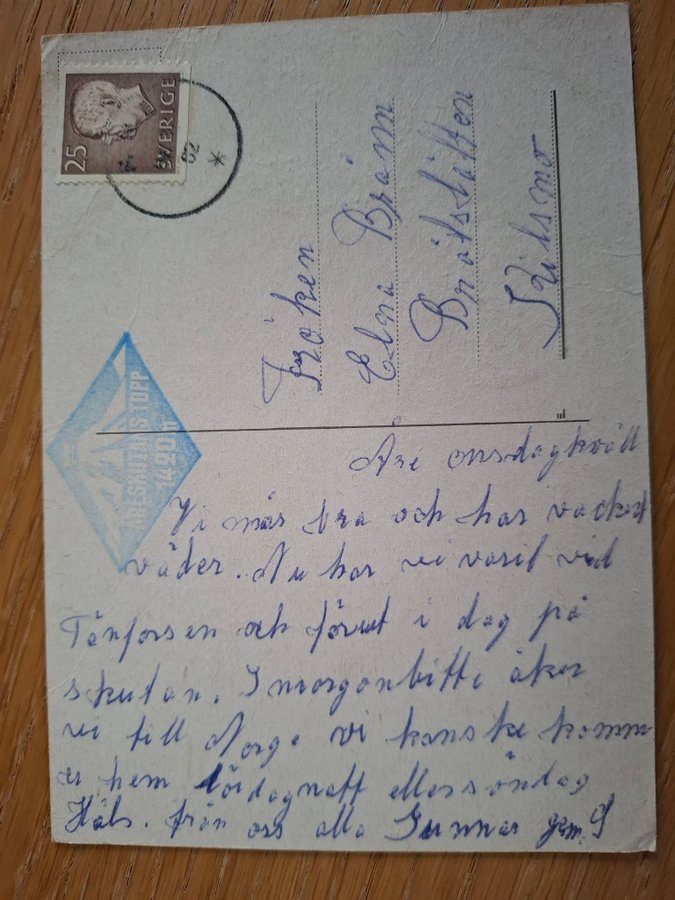 Åre onsdagkväll
Vi mår bra och har vackert
väder. Nu har vi varit vid
Tänforsen och förut i dag på
skutan. I morgonbitti åker
vi till Norge vi kanske komm
er hem lördagnatt ellersöndag
Häls. från oss alla Gunnar
Fröken
Elna Bräm
Brätslätten
Kilsmo
25
SVERIGE
62
ÅRESKUTANS TOPP
1420 m